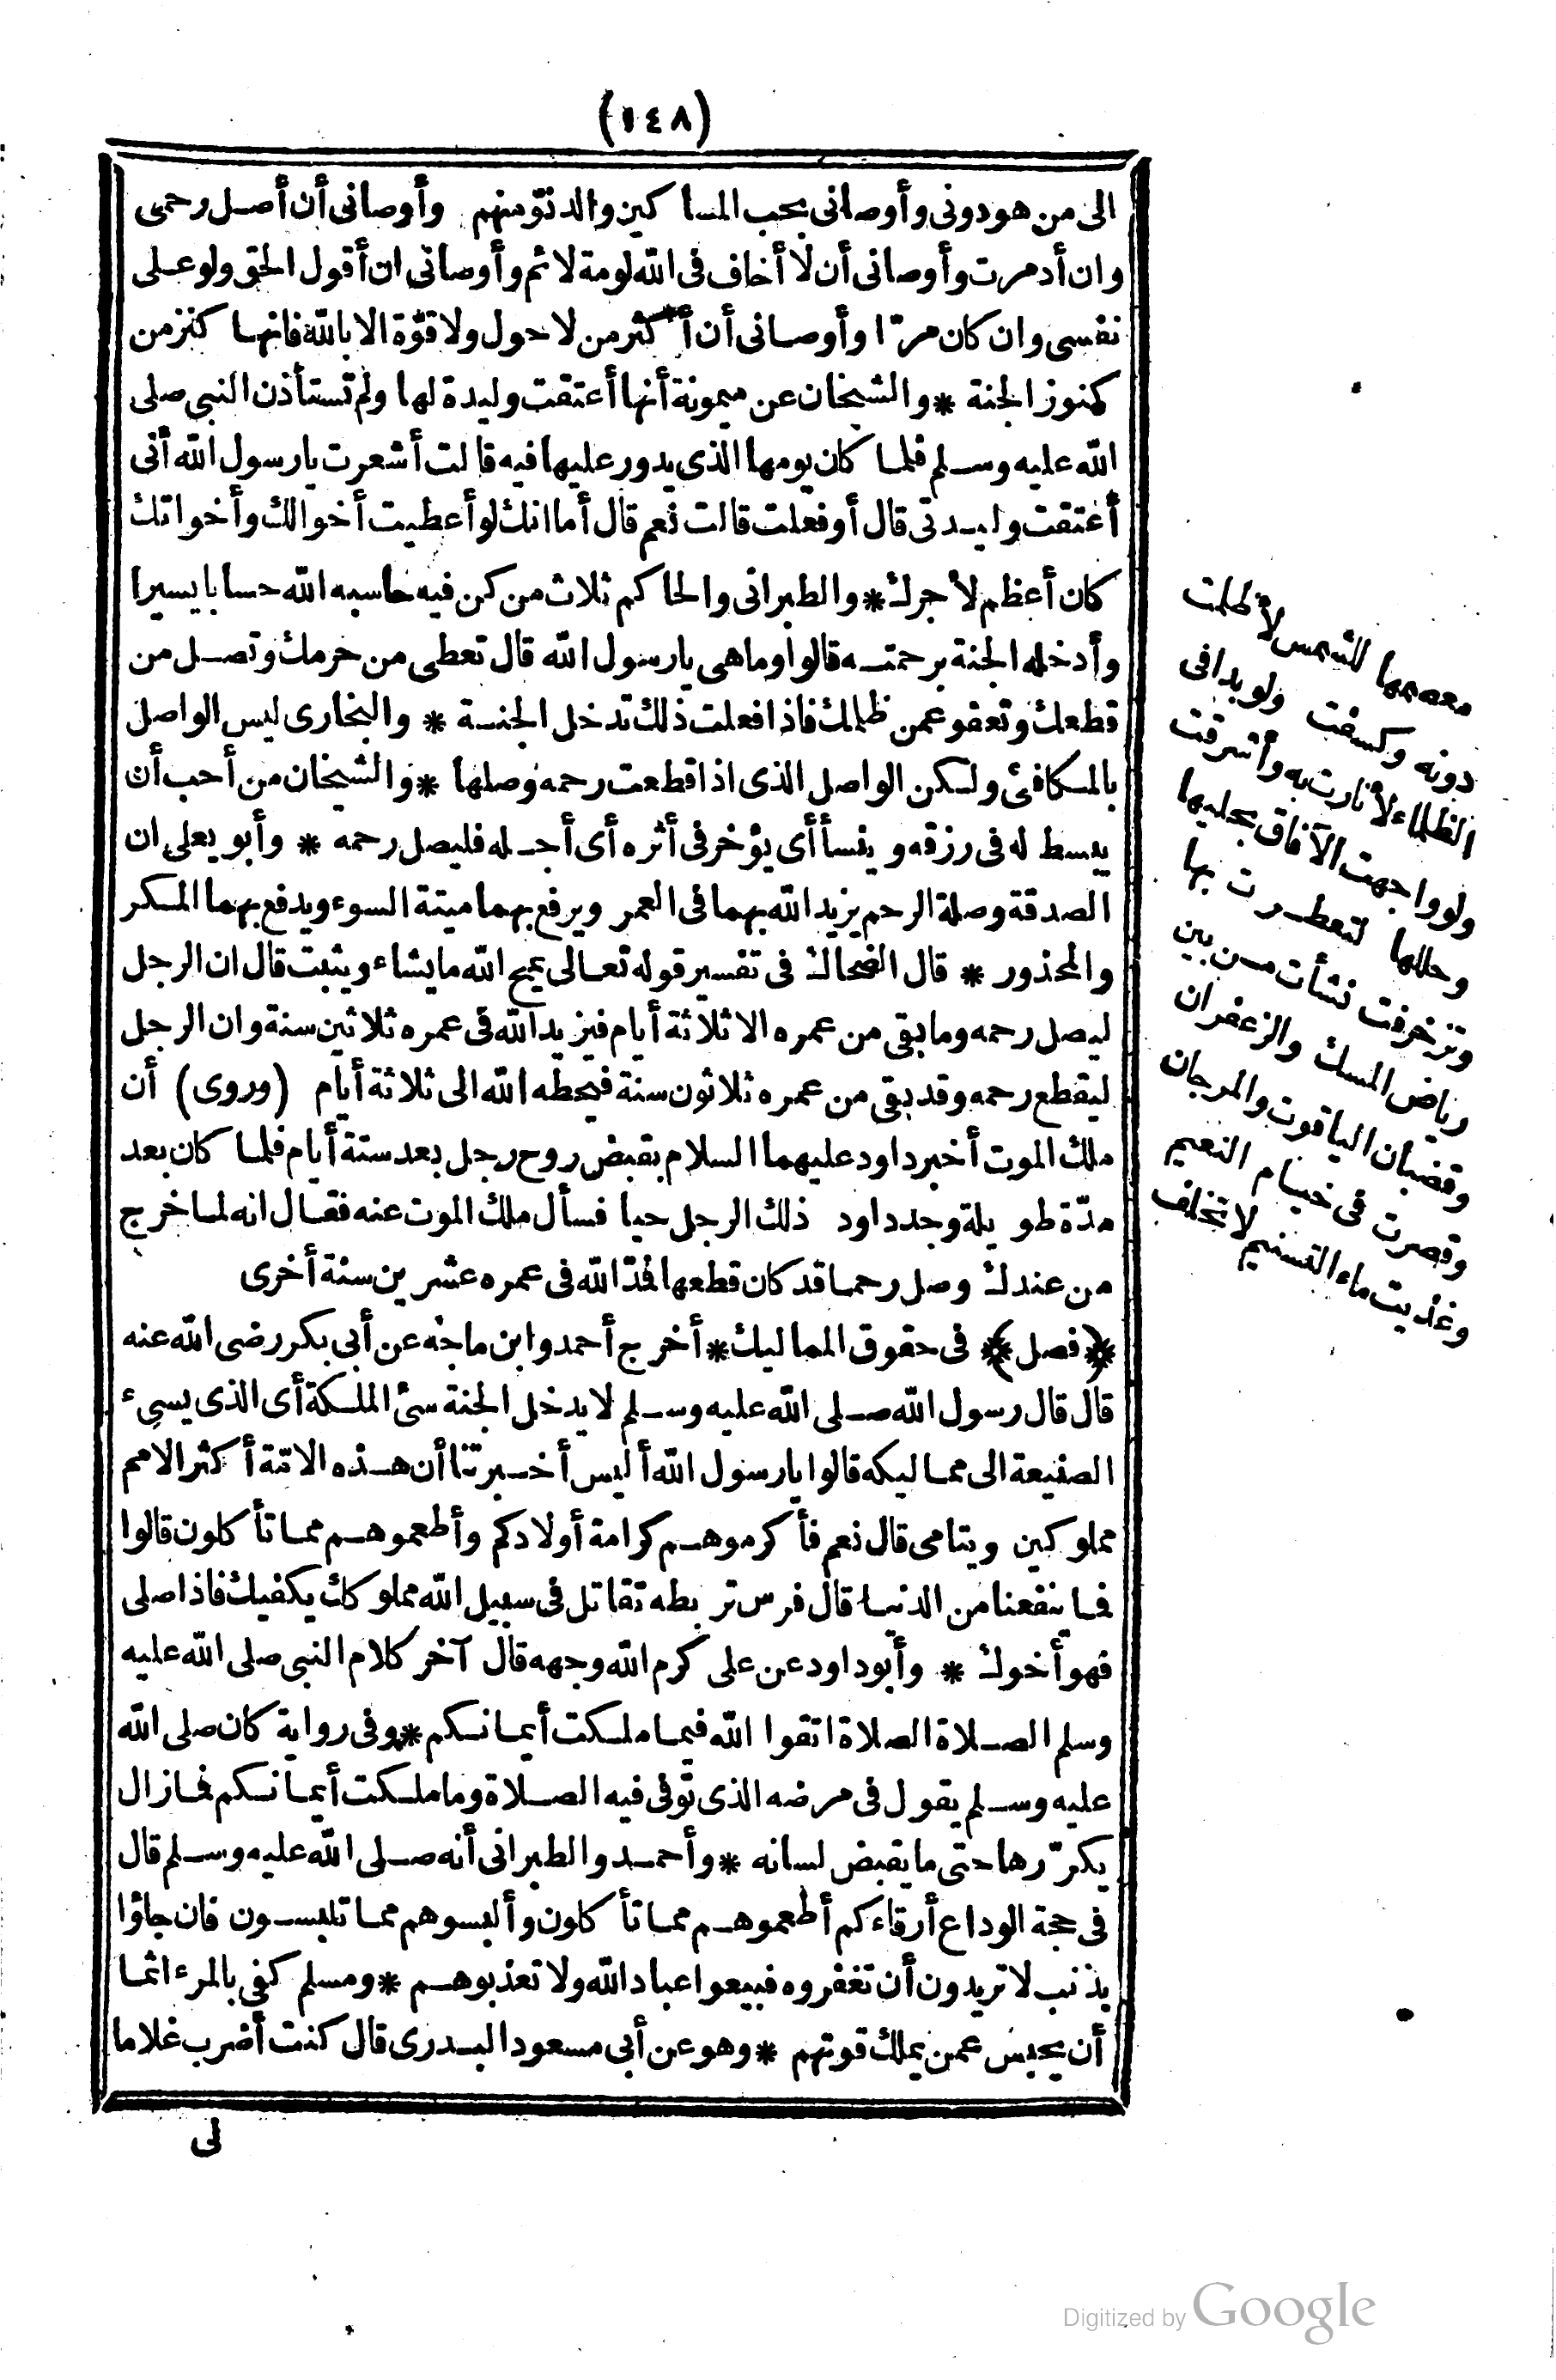 (١٤٨)
الى من هو دونى وأوصانى بحب المساكين والدنوّ منهم وأوصانى أن أصل رحمى
وان أدبرت وأوصانى أن لا أخاف فى الله لومة لائم وأوصانى ان أقول الحق ولو على
نفسى وان كان مرّا وأوصانى أن أكثر من لا حول ولا قوّة الا بالله فانها كنز من
كنوز الجنة * والشيخان عن ميمونة أنها أعتقت وليدة لها ولم تستأذن النبى صلى
الله عليه وسلم فلما كان يومها الذى يدور عليها فيه قالت أشعرت يا رسول الله أنى
أعتقت وليدتى قال أو فعلت قالت نعم قال أما انك لو أعطيت أخوالك وأخواتك
كان أعظم لأجرك * والطبرانى والحاكم ثلاث من كن فيه حاسبه الله حسابا يسيرا
وأدخله الجنة برحمته قالوا وما هى يا رسول الله قال تعطى من حرمك وتصل من
قطعك وتعفو عمن ظلمك فاذا فعلت ذلك تدخل الجنة * والبخارى ليس الواصل
بالمكافئ ولكن الواصل الذى اذا قطعت رحمه وصلها * والشيخان من أحب أن
يبسط له فى رزقه وينسأ أى يؤخر فى أثره أى أجله فليصل رحمه * وأبو يعلى ان
الصدقة وصلة الرحم يزيد الله بهما فى العمر ويرفع بهما ميتة السوء ويدفع بهما المكر
والمحذور * قال الضحاك فى تفسير قوله تعالى يمح الله ما يشاء ويثبت قال ان الرجل
ليصل رحمه وما بقى من عمره الا ثلاثة أيام فيزيد الله فى عمره ثلاثين سنة وان الرجل
ليقطع رحمه وقد بقى من عمره ثلاثون سنة فيحطه الله الى ثلاثة أيام (وروى) أن
ملك الموت أخبر داود عليهما السلام بقبض روح رجل بعد ستة أيام فلما كان بعد
مدّة طويلة وجد داود ذلك الرجل حيا فسأل ملك الموت عنه فقال انه لما خرج
من عندك وصل رحما قد كان قطعها فمدّ الله فى عمره عشرين سنة أخرى
﴿فصل﴾ فى حقوق المماليك * أخرج أحمد وابن ماجه عن أبى بكر رضى الله عنه
قال قال رسول الله صلى الله عليه وسلم لا يدخل الجنة سئ الملكة أى الذى يسىء
الصنيعة الى مماليكه قالوا يا رسول الله أليس أخبرتنا أن هذه الامّة أكثر الامم
مملوكين ويتامى قال نعم فأكرموهم كرامة أولادكم وأطعموهم مما تأكلون قالوا
فما ينفعنا من الدنيا قال فرس تربطه تقاتل فى سبيل الله مملوكك يكفيك فاذا صلى
فهو أخوك * وأبو داود عن على كرم الله وجهه قال آخر كلام النبى صلى الله عليه
وسلم الصلاة الصلاة اتقوا الله فيما ملكت أيمانكم * وفى رواية كان صلى الله
عليه وسلم يقول فى مرضه الذى توفى فيه الصلاة وما ملكت أيمانكم فما زال
يكرّرها حتى ما يقبض لسانه * وأحمد والطبرانى أنه صلى الله عليه وسلم قال
فى حجة الوداع أرقاءكم أطعموهم مما تأكلون وألبسوهم مما تلبسون فان جاؤا
بذنب لا تريدون أن تغفروه فبيعوا عباد الله ولا تعذبوهم * ومسلم كفى بالمرء اثما
أن يحبس عمن يملك قوتهم * وهو عن أبى مسعود البدرى قال كنت أضرب غلاما
لى
معصمها للشمس لأظلمت
دونه وكسفت ولو بدا فى
الظلماء لأنارت به وأشرقت
ولو واجهت الآفاق بحليها
وحللها لتعطرت بها
وتزخرفت نشأت من بين
رياض المسك والزعفران
وقضبان الياقوت والمرجان
وقصرت فى خيام النعيم
وغذيت بماء التسنيم لا تخلف
Digitized by Google